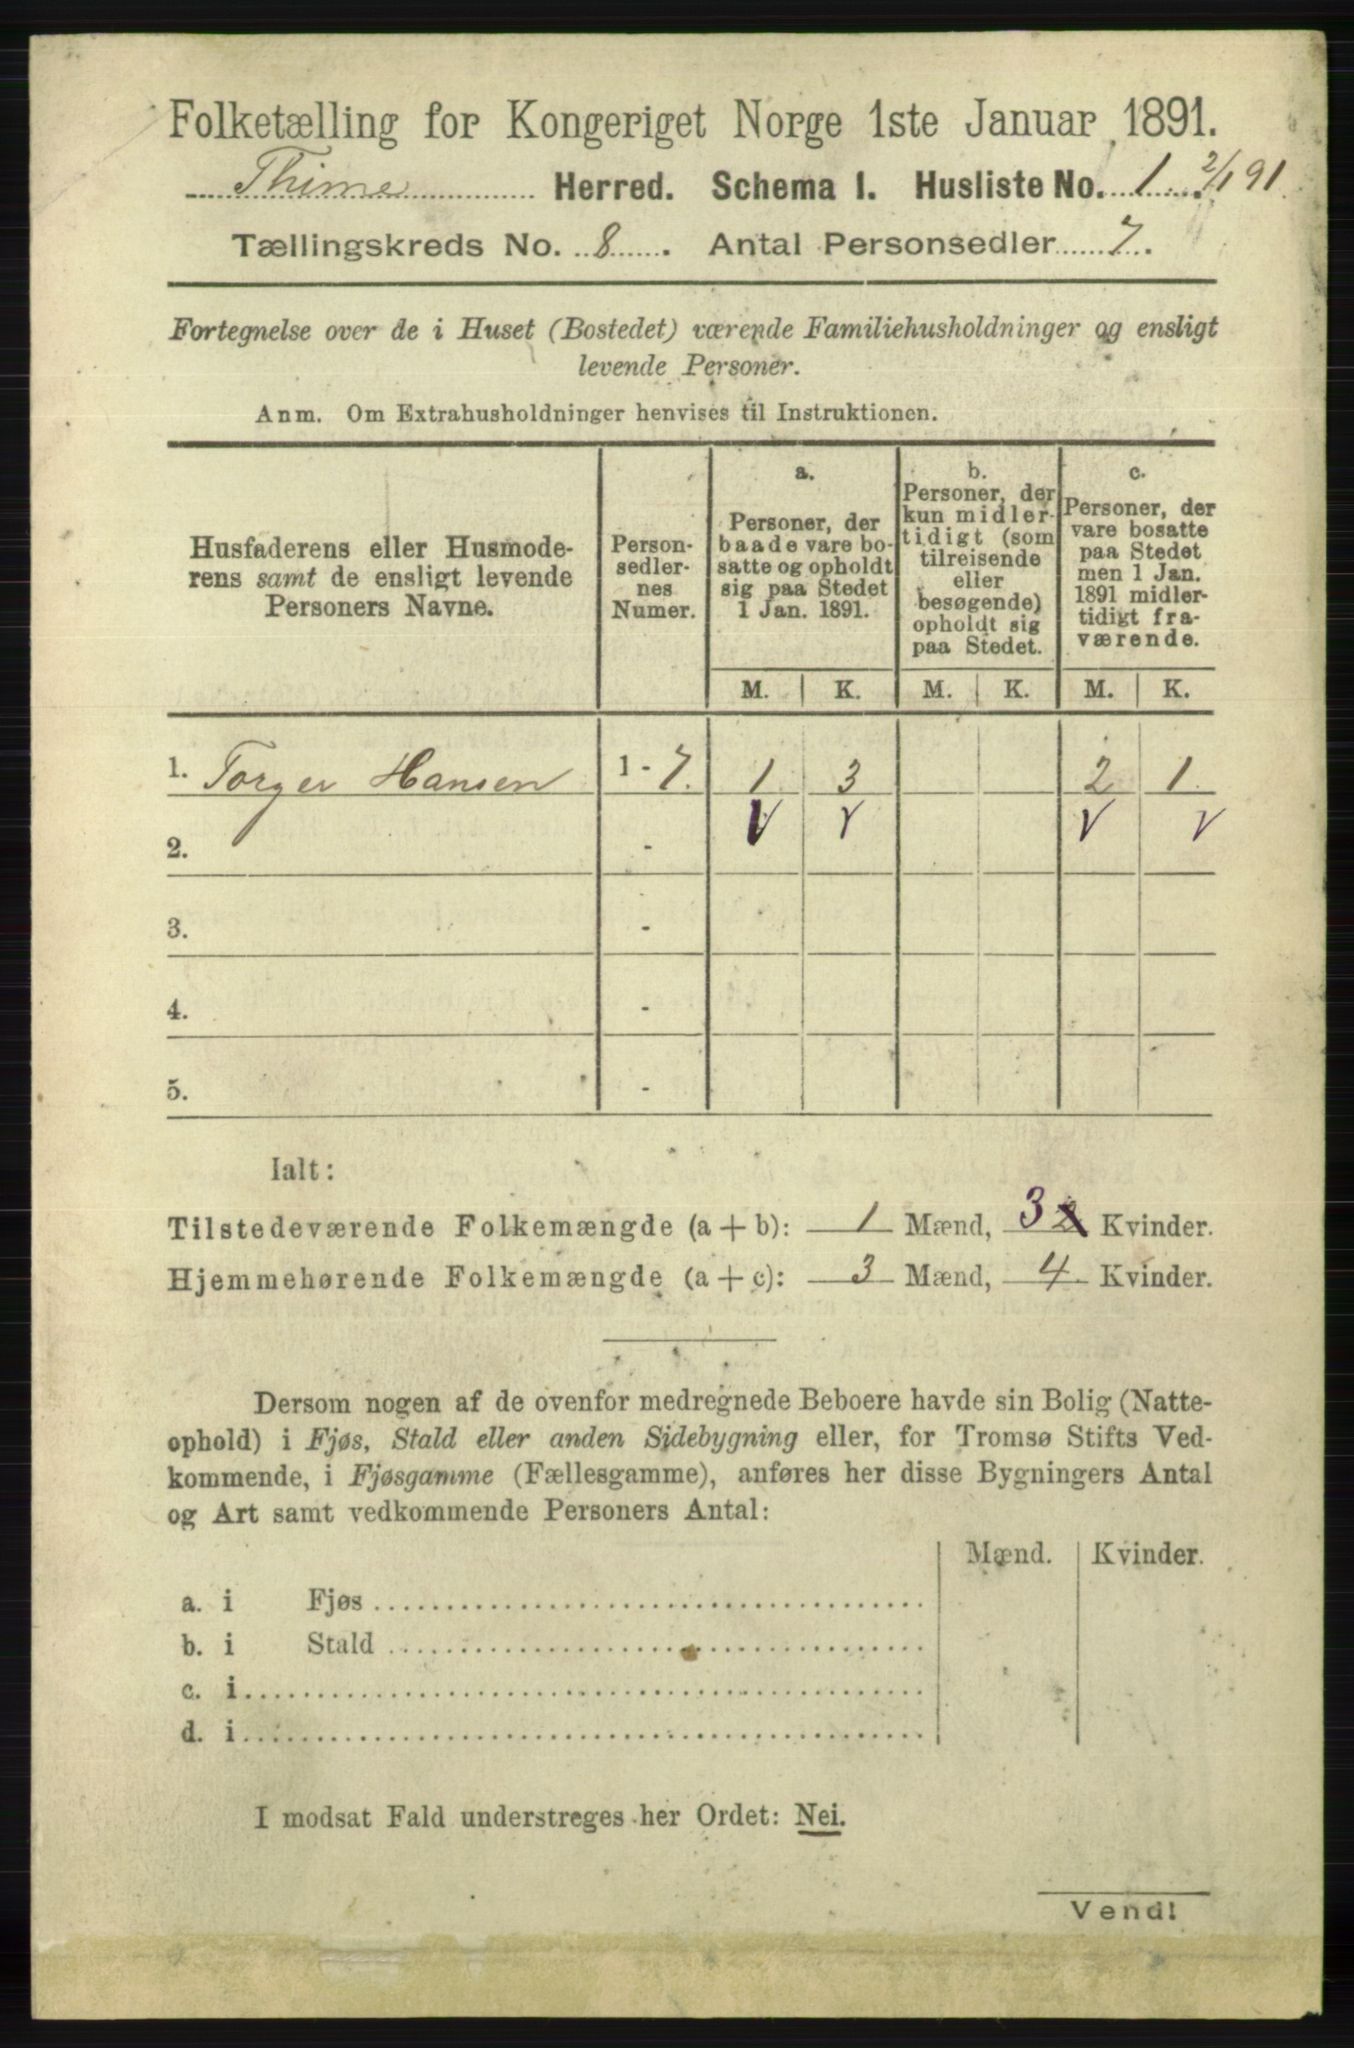 Folketælling for Kongeriget Norge 1ste Januar 1891.
Thime Herred. Schema 1. Husliste No. 1. 2/1 91.
Tællingskreds No. 8. Antal Personsedler 7.
Fortegnelse over de i Huset (Bostedet) værende Familiehusholdninger og ensligt
levende Personer.
Anm. Om Extrahusholdninger henvises til Instruktionen.
Husfaderens eller Husmode-
rens samt de ensligt levende
Personers Navne.
Person-
sedler-
nes
Numer.
a.
Personer, der
baade vare bo-
satte og opholdt
sig paa Stedet
1 Jan. 1891.
b.
Personer, der
kun midler-
tidigt (som
tilreisende
eller
besøgende)
opholdt sig
paa Stedet.
c.
Personer, der
vare bosatte
paa Stedet
men 1 Jan.
1891 midler-
tidigt fra-
værende.
M. K. M. K. M. K.
1. Torger Hansen 1 - 7. 1 3 2 1.
2. - V V V V
3. -
4. -
5. -
Ialt:
Tilstedeværende Folkemængde (a + b): 1 Mænd, 3 2 Kvinder.
Hjemmehørende Folkemængde (a + c): 3 Mænd, 4 Kvinder.
Dersom nogen af de ovenfor medregnede Beboere havde sin Bolig (Natte-
ophold) i Fjøs, Stald eller anden Sidebygning eller, for Tromsø Stifts Ved-
kommende, i Fjøsgamme (Fællesgamme), anføres her disse Bygningers Antal
og Art samt vedkommende Personers Antal:
Mænd. Kvinder.
a. i Fjøs
b. i Stald
c. i
d. i
I modsat Fald understreges her Ordet: Nei.
Vend!